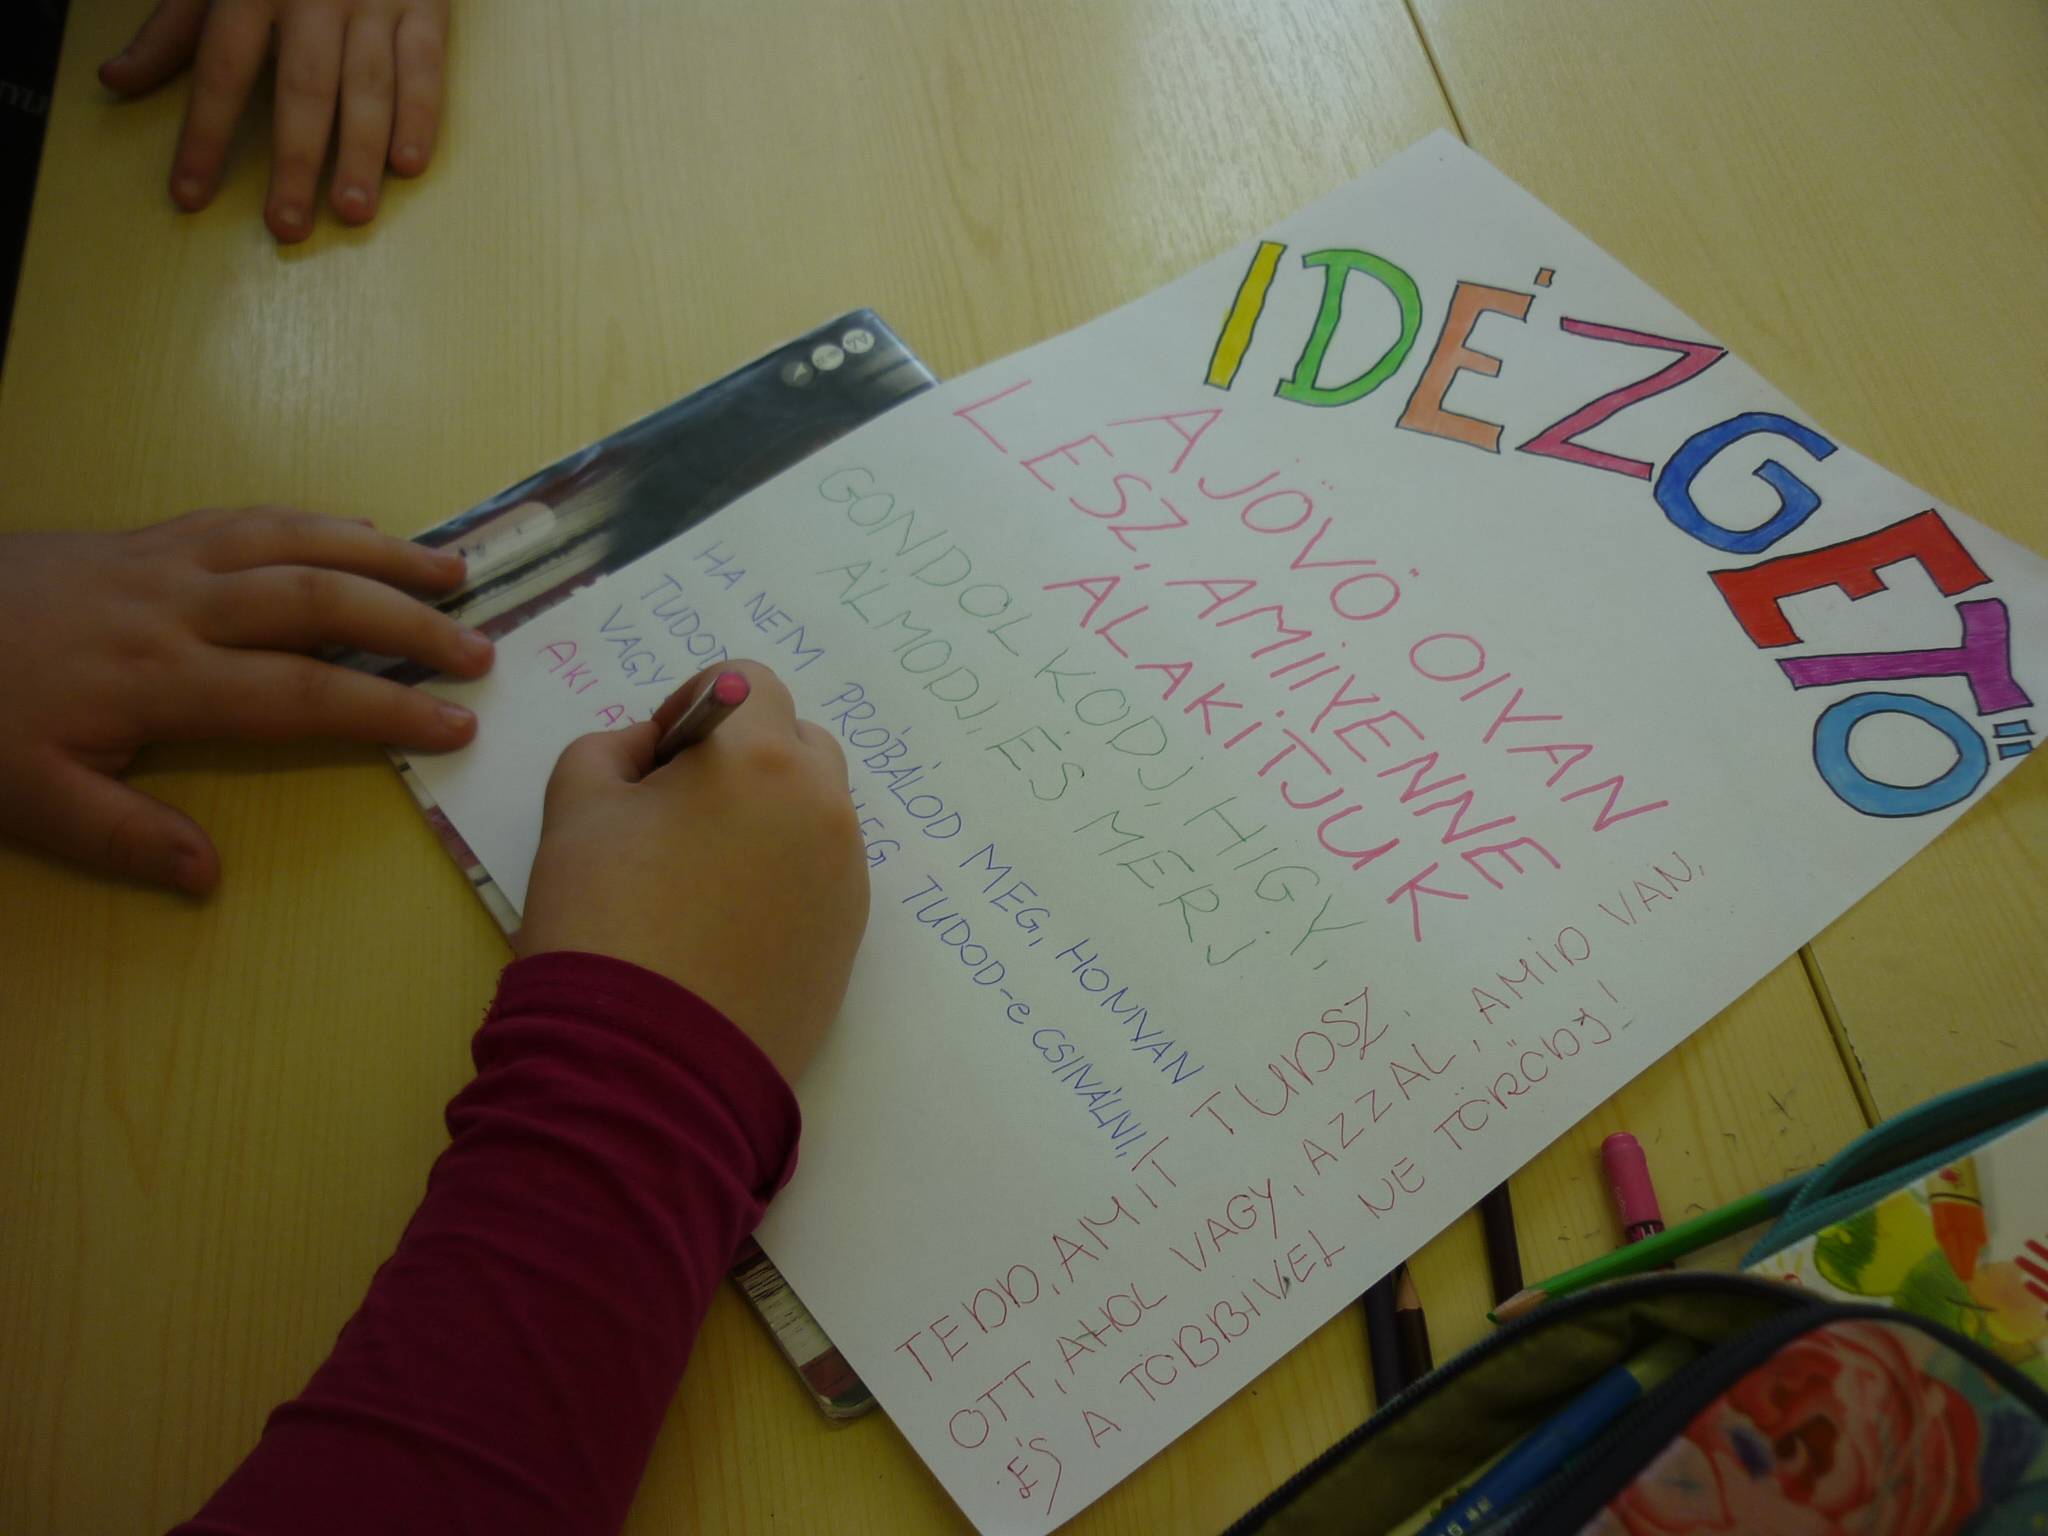 IDÉZGETŐ
A JÖVŐ OlYAN
LESZ, AMIlYENNE
ÁLAKíTJUK
GONDOLKODJ, HIGY,
ÁLMODJ, ÉS MERJ
HA NEM PRÓBÁLOD MEG, HONNAN
TUDOD MEG TUDOD-e CSINÁLNI,
VAGY
AKI
TEDD, AMIT TUDSZ,
OTT, AHOL VAGY, AZZAL, AMID VAN,
ÉS A TÖBBIVEL NE TÖRŐDJ!
A4